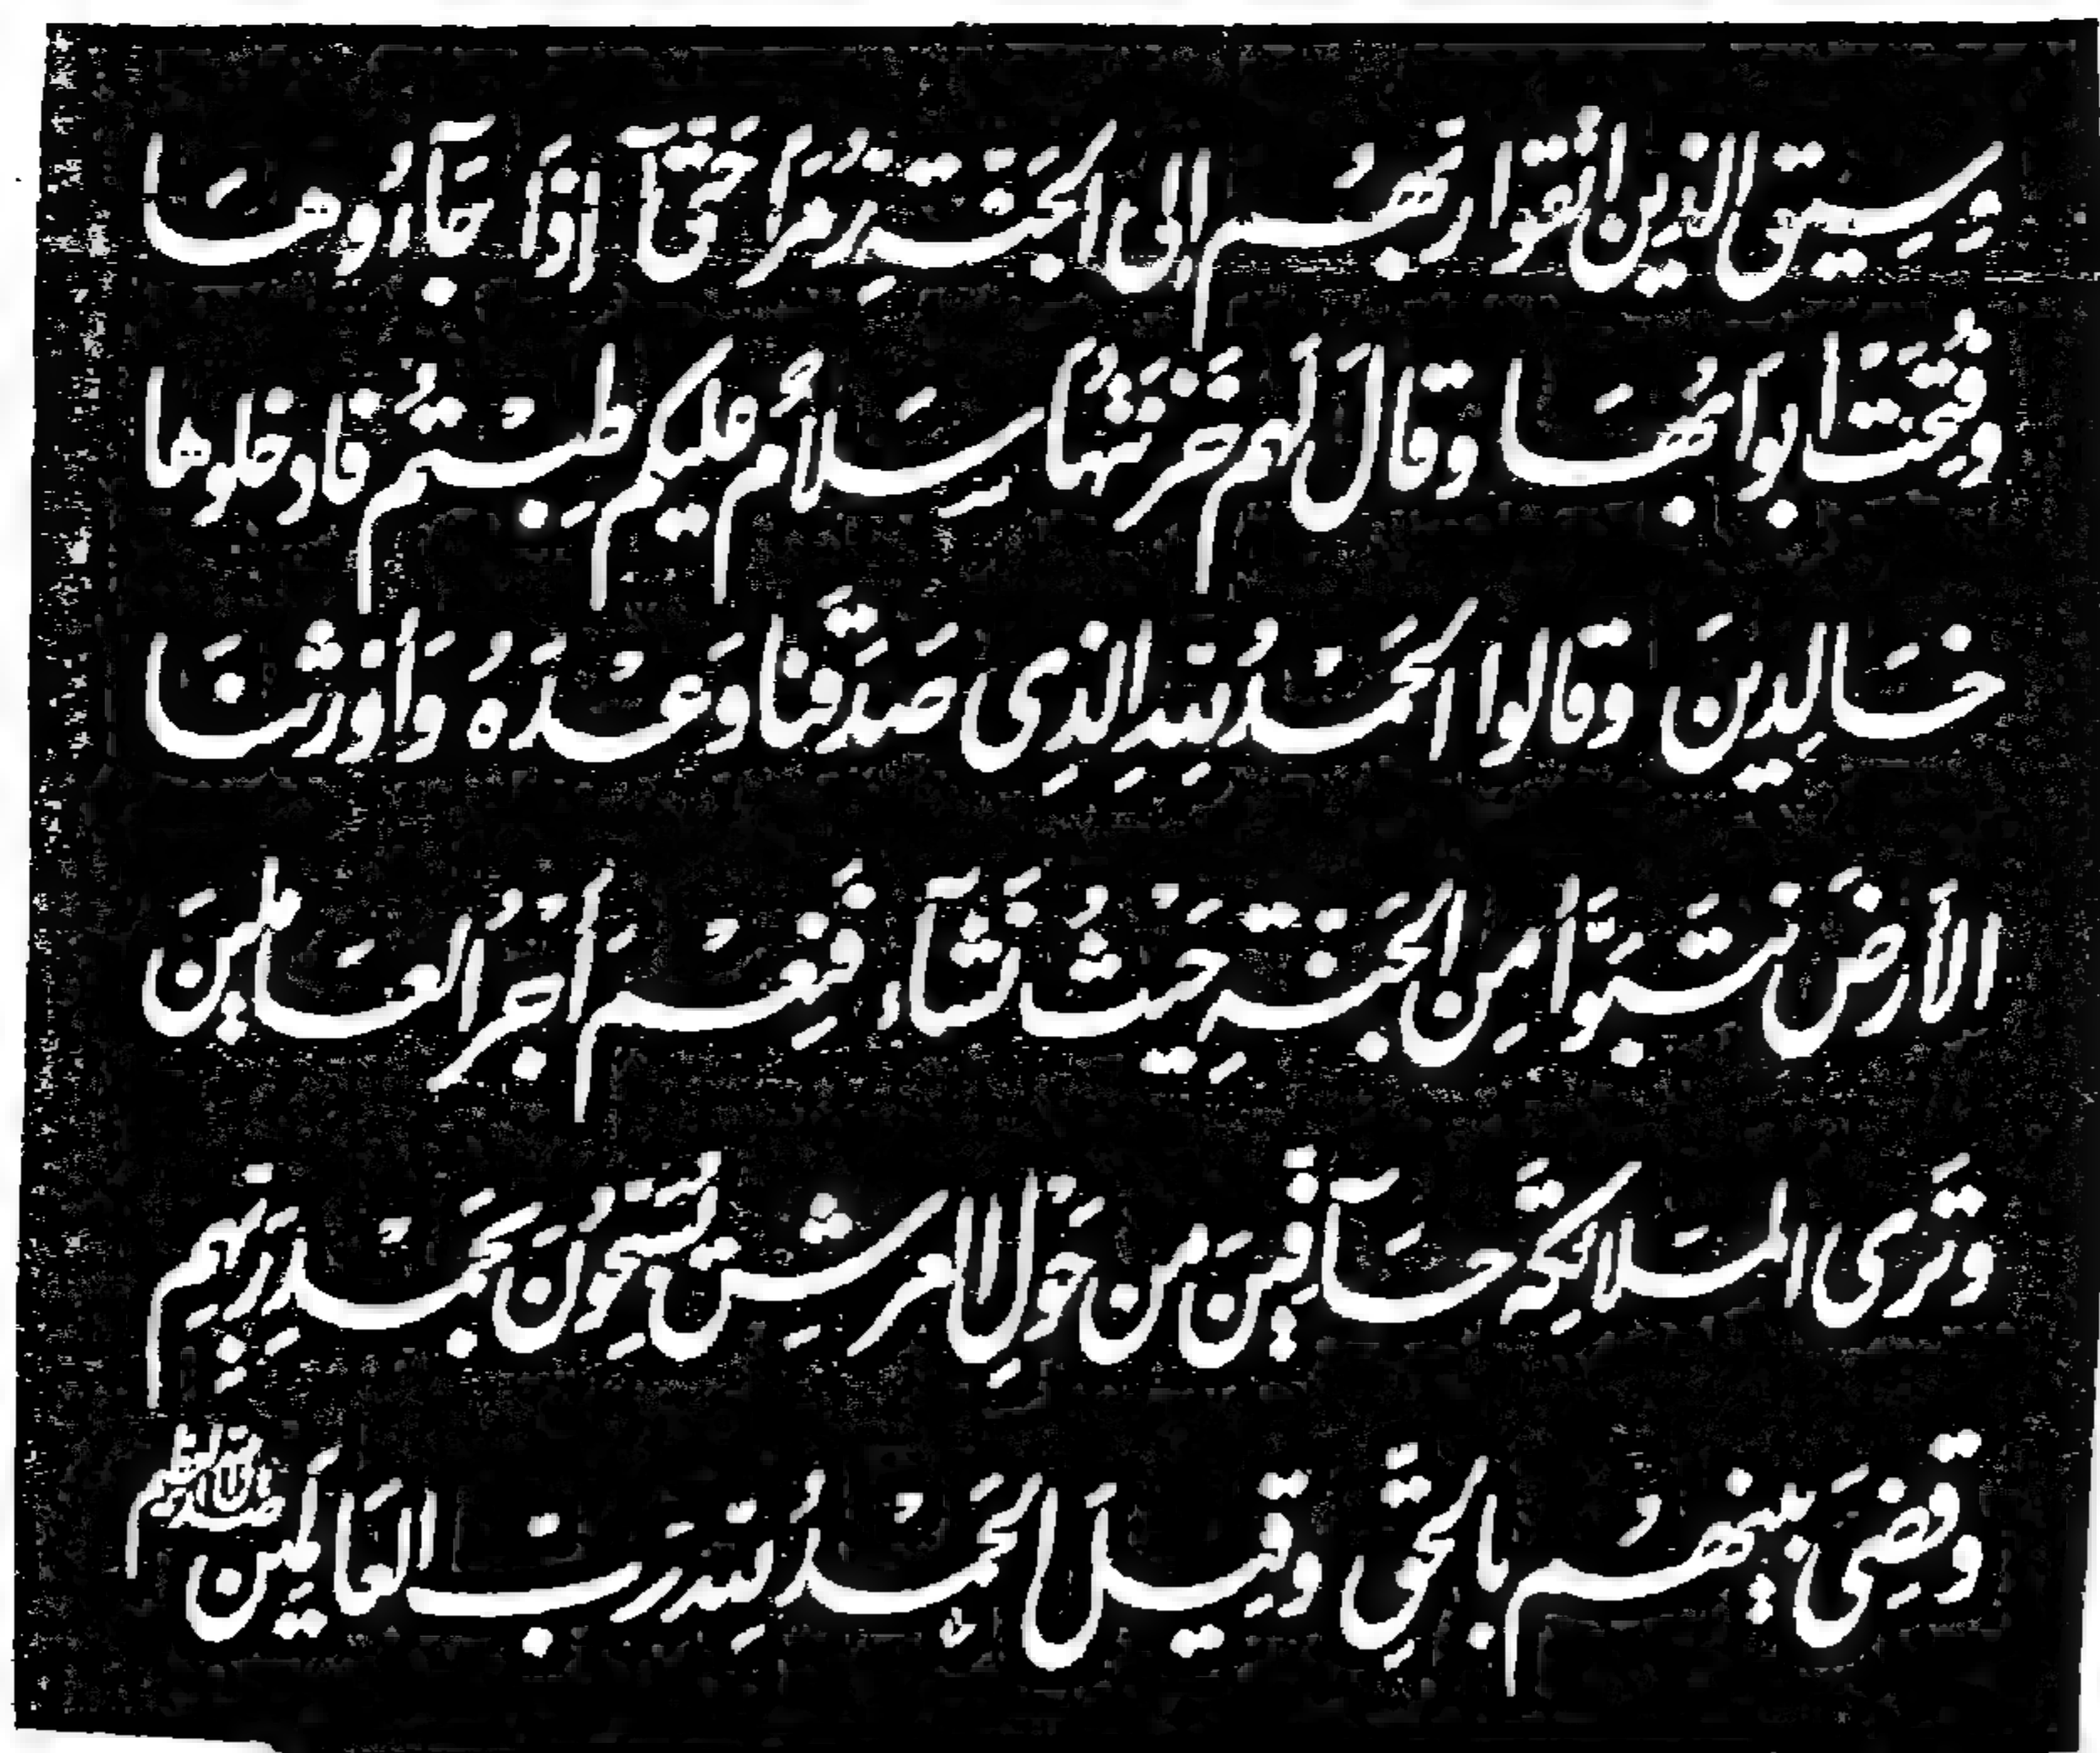 وَسِيقَ الَّذِينَ اتَّقَوْا رَبَّهُمْ إِلَى الْجَنَّةِ زُمَرًا حَتَّىٰ إِذَا جَآءُوهَا
وَفُتِحَتْ أَبْوَابُهَا وَقَالَ لَهُمْ خَزَنَتُهَا سَلَامٌ عَلَيْكُمْ طِبْتُمْ فَادْخُلُوهَا
خَالِدِينَ وَقَالُوا الْحَمْدُ لِلَّهِ الَّذِي صَدَقَنَا وَعْدَهُ وَأَوْرَثَنَا
الْأَرْضَ نَتَبَوَّأُ مِنَ الْجَنَّةِ حَيْثُ نَشَآءُ فَنِعْمَ أَجْرُ الْعَامِلِينَ
وَتَرَى الْمَلَائِكَةَ حَآفِّينَ مِنْ حَوْلِ الْعَرْشِ يُسَبِّحُونَ بِحَمْدِ رَبِّهِمْ
وَقُضِيَ بَيْنَهُمْ بِالْحَقِّ وَقِيلَ الْحَمْدُ لِلَّهِ رَبِّ الْعَالَمِينَ صدق الله العظيم